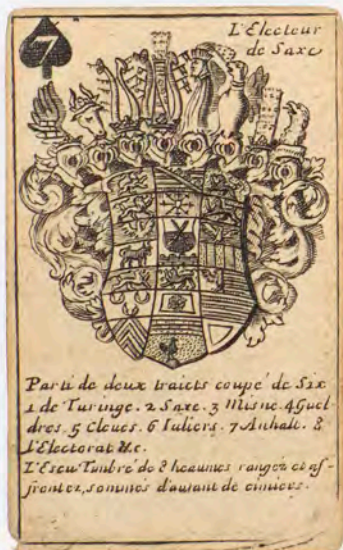 7
L'Electeur
de Saxe
Parti de deux traicts coupé de Six
1 de Turinge. 2 Saxe. 3 Misne. 4 Guel
dres. 5 Cleues. 6 Iuliers. 7 Anhalt. 8
l'Electorat &c.
L'Escu Timbré de 8 heaumes rangez et af-
frontez, sommés d'autant de cimiers.